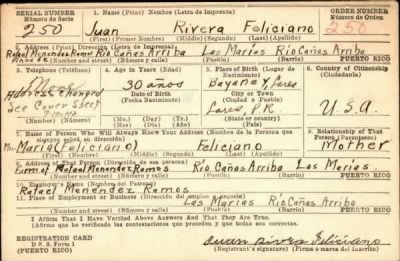 SERIAL NUMBER 1. Name (Print) Nombre (Letra de Imprenta) ORDER NUMBER
Número de Serie Número de Orden
250 Juan Rivera Feliciano 250
(First) (Primer Nombre) (Middle) (Segundo) (Last) (Apellido)
2. Address (Print) Dirección (Letra de Imprenta)
Rafael Menendez Ramos Rio Cañas Arriba Las Marias Rio Cañas Arriba
Number and street (Número y calle) PUERTO RICO
3. Telephone (Teléfono) 4. Age in Years (Edad) 5. Place of Birth (Lugar de Nacimiento) 6. Country of Citizenship (Ciudadanía)
No
Address changed
See Cover Sheet
30 años
Date of Birth
(Fecha Nacimiento)
(Mo.) (Day) (Yr.)
(Mes) (Día) (Año)
Lares
City or Town
(Ciudad o Pueblo)
Lares, P.R.
(State or country)
U.S.A.
7. Name of Person Who Will Always Know Your Address (Nombre de la Persona que siempre sabrá, su dirección) 8. Relationship of That Person (Parentesco)
Mrs Maria (Feliciano) Feliciano Mother
(First) (Primer Nombre) (Middle) (Segundo) (Last) (Apellido)
9. Address of That Person (Dirección de esa persona)
Farm of Rafael Menendez Ramos Rio Cañas Arriba Las Marias
(Number and street) (Número y calle) PUERTO RICO
10. Employer's Name (Nombre del Patrono)
Rafael Menendez Ramos
11. Place of Employment or Business (Dirección del empleo o negocio)
Las Marias Rio Cañas Arriba
(Number and street) (Número y calle) PUERTO RICO
I Affirm That I Have Verified Above Answers And That They Are True.
(Afirmo que he verificado las contestaciones que preceden y que son ciertas.)
REGISTRATION CARD
D. S. S. Form 1
(PUERTO RICO)
Juan Rivera Feliciano
(Registrant's signature) (Firma o marca del Inscrito)